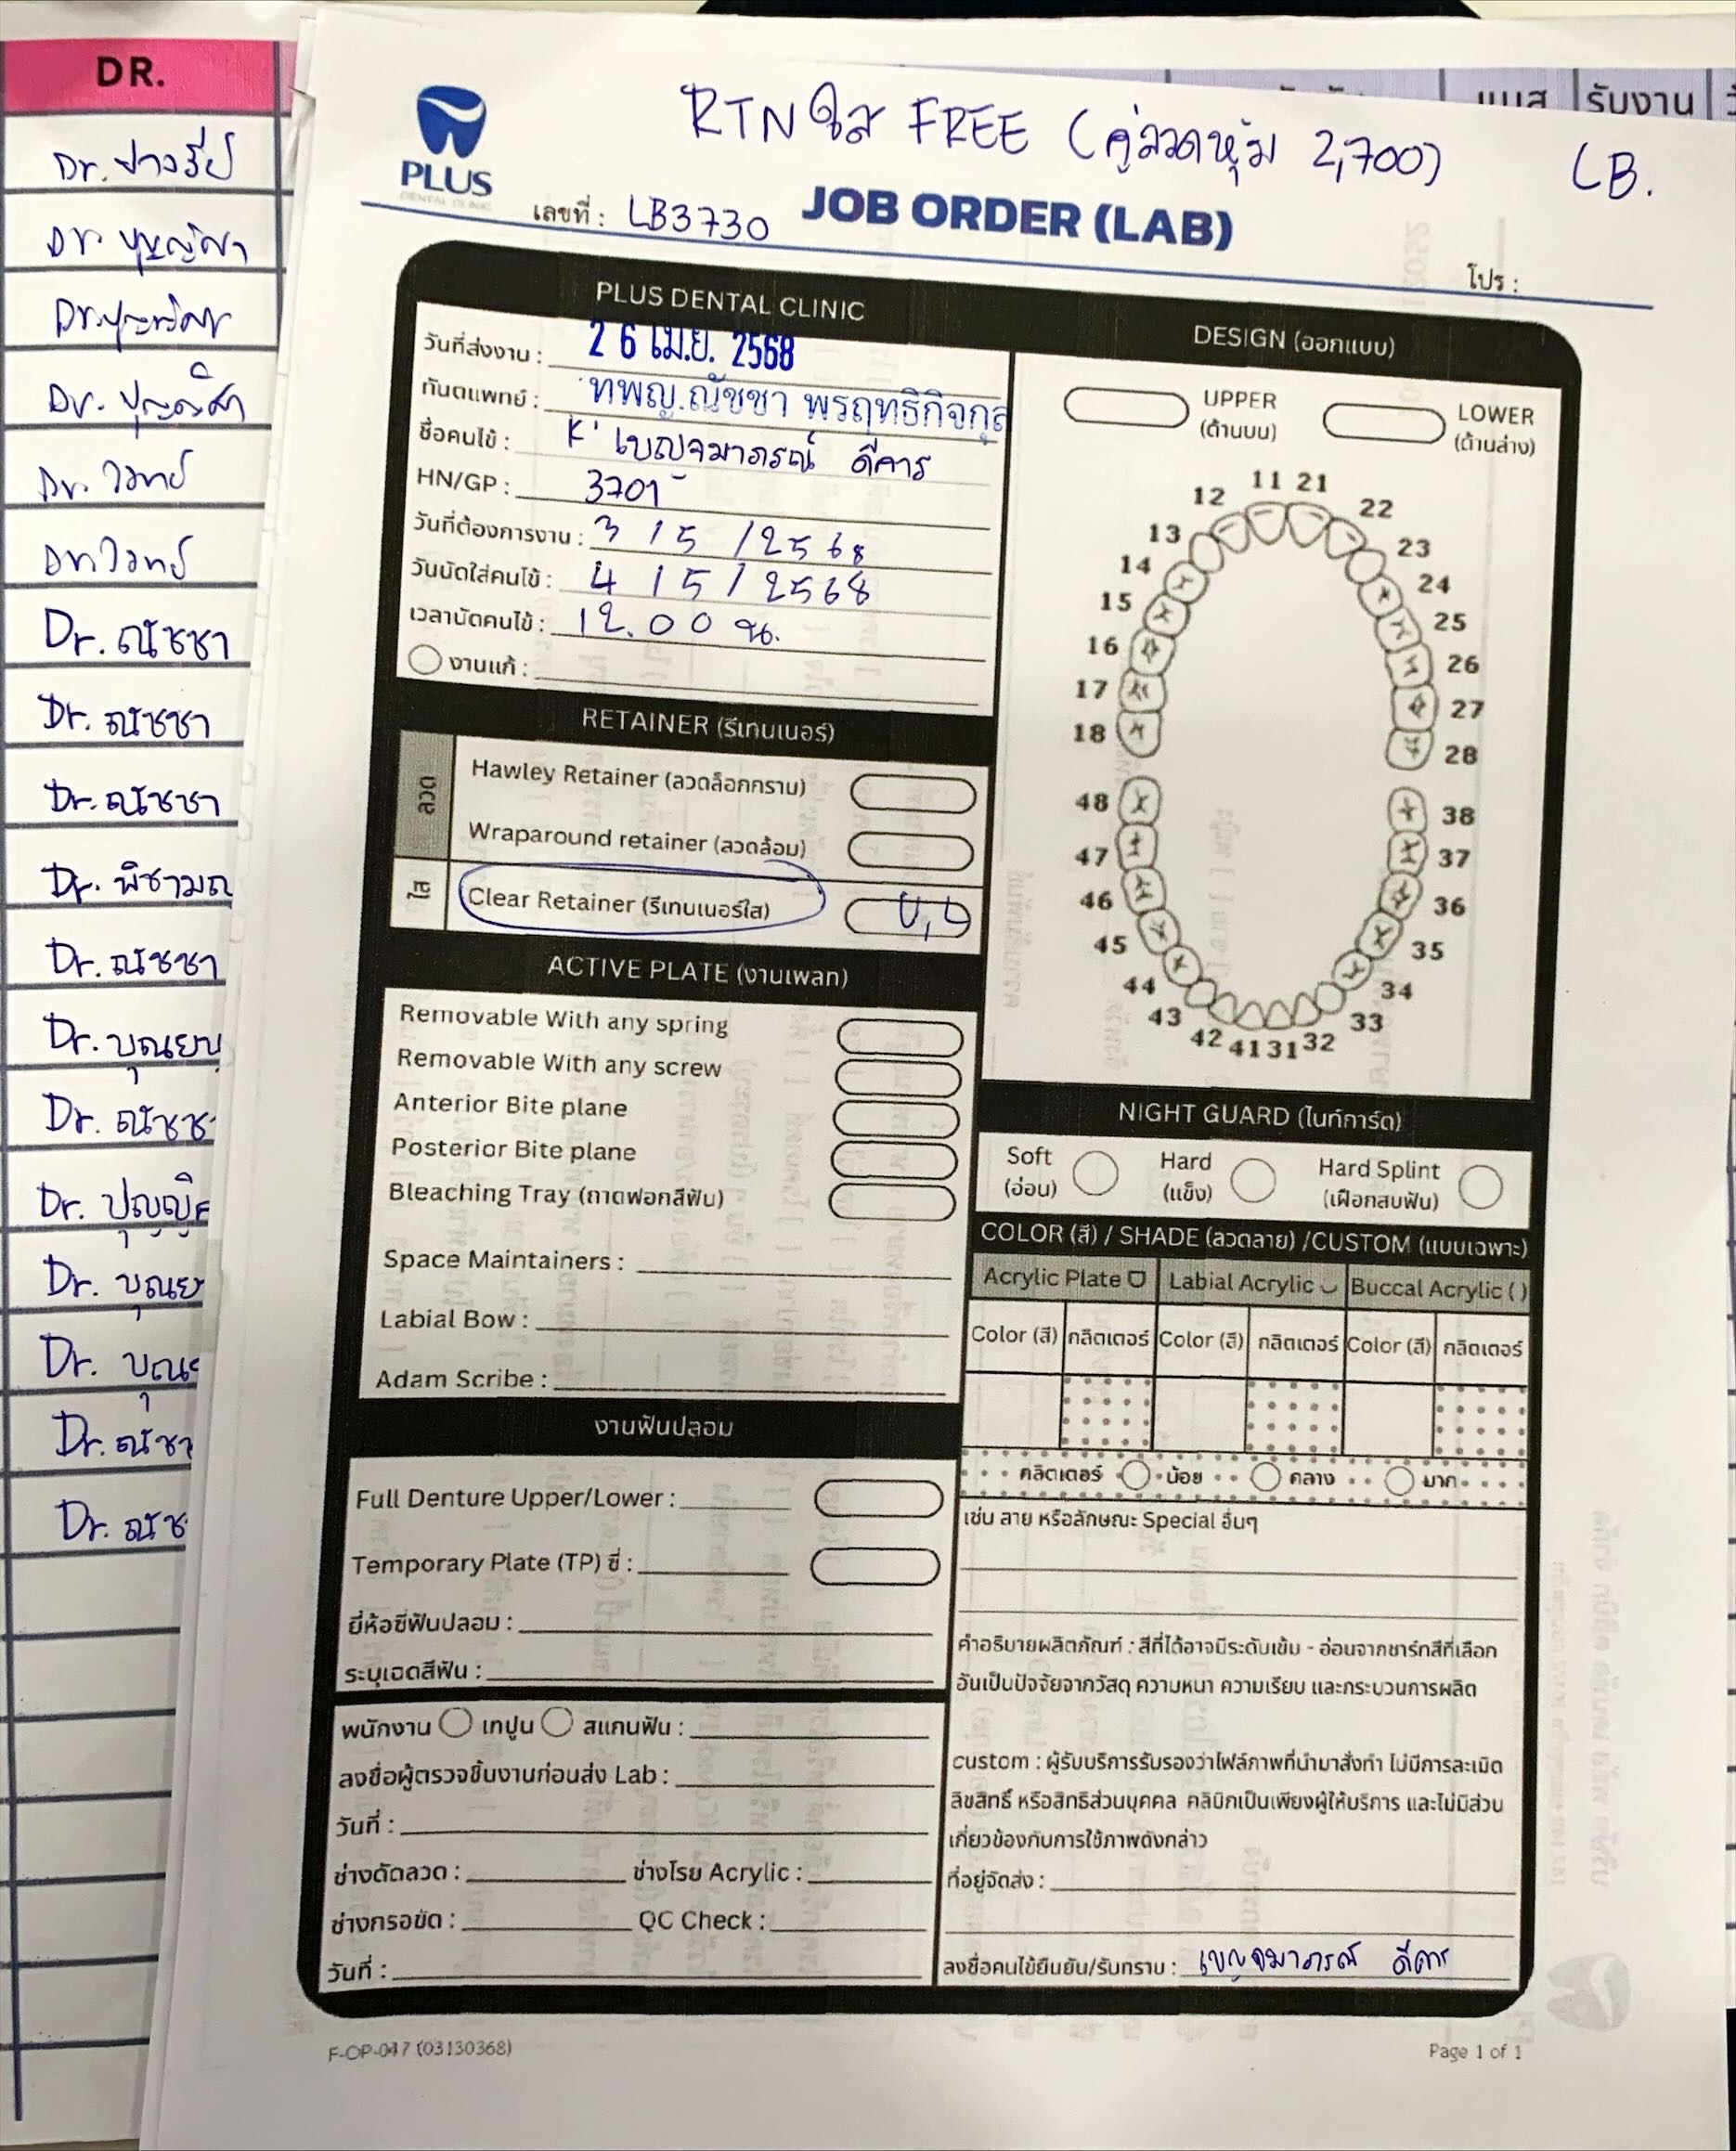 DR.
Dr. ณัชชา
Dr. ณัชชา
Dr. ณัชชา
Dr. พิชามณ
Dr. ณัชชา
Dr. บุณยบุ
Dr. ณัชช
Dr. ปุญญิ
Dr. บุณย
Dr. บุณ
Dr. ณัชา
Dr. ณัช
แมส รับงาน
RTN ใส FREE (คู่ลวดหุ้ม 2,700) LB.
PLUS
DENTAL CLINIC
เลขที่ : LB3730 JOB ORDER (LAB)
โปร :
PLUS DENTAL CLINIC
วันที่ส่งงาน : 26 เม.ย. 2568
ทันตแพทย์ : ทพญ.ณัชชา พรฤทธิกิจกุล
ชื่อคนไข้ : K' เบญจมาภรณ์ ดีคาร
HN/GP : 3701
วันที่ต้องการงาน : 3 / 5 / 2568
วันนัดใส่คนไข้ : 4 / 5 / 2568
เวลานัดคนไข้ : 12.00 น.
งานแก้ :
RETAINER (รีเทนเนอร์)
ลวด
Hawley Retainer (ลวดล็อกกราม)
Wraparound retainer (ลวดล้อม)
ใส
Clear Retainer (รีเทนเนอร์ใส) U, L
ACTIVE PLATE (งานเพลท)
Removable With any spring
Removable With any screw
Anterior Bite plane
Posterior Bite plane
Bleaching Tray (ถาดฟอกสีฟัน)
Space Maintainers :
Labial Bow :
Adam Scribe :
งานฟันปลอม
Full Denture Upper/Lower :
Temporary Plate (TP) ซี่ :
ยี่ห้อซี่ฟันปลอม :
ระบุเฉดสีฟัน :
พนักงาน เทปูน สแกนฟัน :
ลงชื่อผู้ตรวจชิ้นงานก่อนส่ง Lab :
วันที่ :
ช่างดัดลวด : ช่างโรย Acrylic :
ช่างกรอขัด : QC Check :
วันที่ :
DESIGN (ออกแบบ)
UPPER
(ด้านบน)
LOWER
(ด้านล่าง)
11 21
12 22
13 23
14 24
15 25
16 26
17 27
18 28
48 38
47 37
46 36
45 35
44 34
43 33
42 41 31 32
NIGHT GUARD (ไนท์การ์ด)
Soft
(อ่อน)
Hard
(แข็ง)
Hard Splint
(เฝือกสบฟัน)
COLOR (สี) / SHADE (ลวดลาย) /CUSTOM (แบบเฉพาะ)
Acrylic Plate Labial Acrylic Buccal Acrylic ( )
Color (สี) กลิตเตอร์ Color (สี) กลิตเตอร์ Color (สี) กลิตเตอร์
กลิตเตอร์ น้อย กลาง มาก
เช่น ลาย หรือลักษณะ Special อื่นๆ
คำอธิบายผลิตภัณฑ์ : สีที่ได้อาจมีระดับเข้ม - อ่อนจากชาร์ทสีที่เลือก
อันเป็นปัจจัยจากวัสดุ ความหนา ความเรียบ และกระบวนการผลิต
custom : ผู้รับบริการรับรองว่าไฟล์ภาพที่นำมาสั่งทำ ไม่มีการละเมิด
ลิขสิทธิ์ หรือสิทธิส่วนบุคคล คลินิกเป็นเพียงผู้ให้บริการ และไม่มีส่วน
เกี่ยวข้องกับการใช้ภาพดังกล่าว
ที่อยู่จัดส่ง :
ลงชื่อคนไข้ยืนยัน/รับทราบ : เบญจมาภรณ์ ดีคาร
F-OP-047 (03130368)
Page 1 of 1